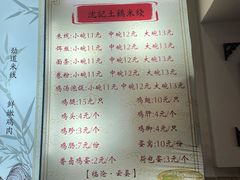 沈記土鸡米线
米线:小碗11元 中碗12元 大碗13元
饵丝:小碗11元 中碗12元 大碗13元
面条:小碗11元 中碗12元 大碗13元
卷粉:小碗11元 中碗12元 大碗13元
鸡汤泡饭:小碗11元 中碗12元 大碗13元
鸡腿:15元/只 鸡翅:10元/只
鸡头:4元/个 鸡肝:10元/份
鸡胗:7元/个 鸡脚:4元/只
鸡肠:10元/份 蛋窝:10元/份
普卤鸡蛋:2元/个 荷包蛋:3元/个
【临沧·云县】
劲道米线
鲜嫩鸡肉